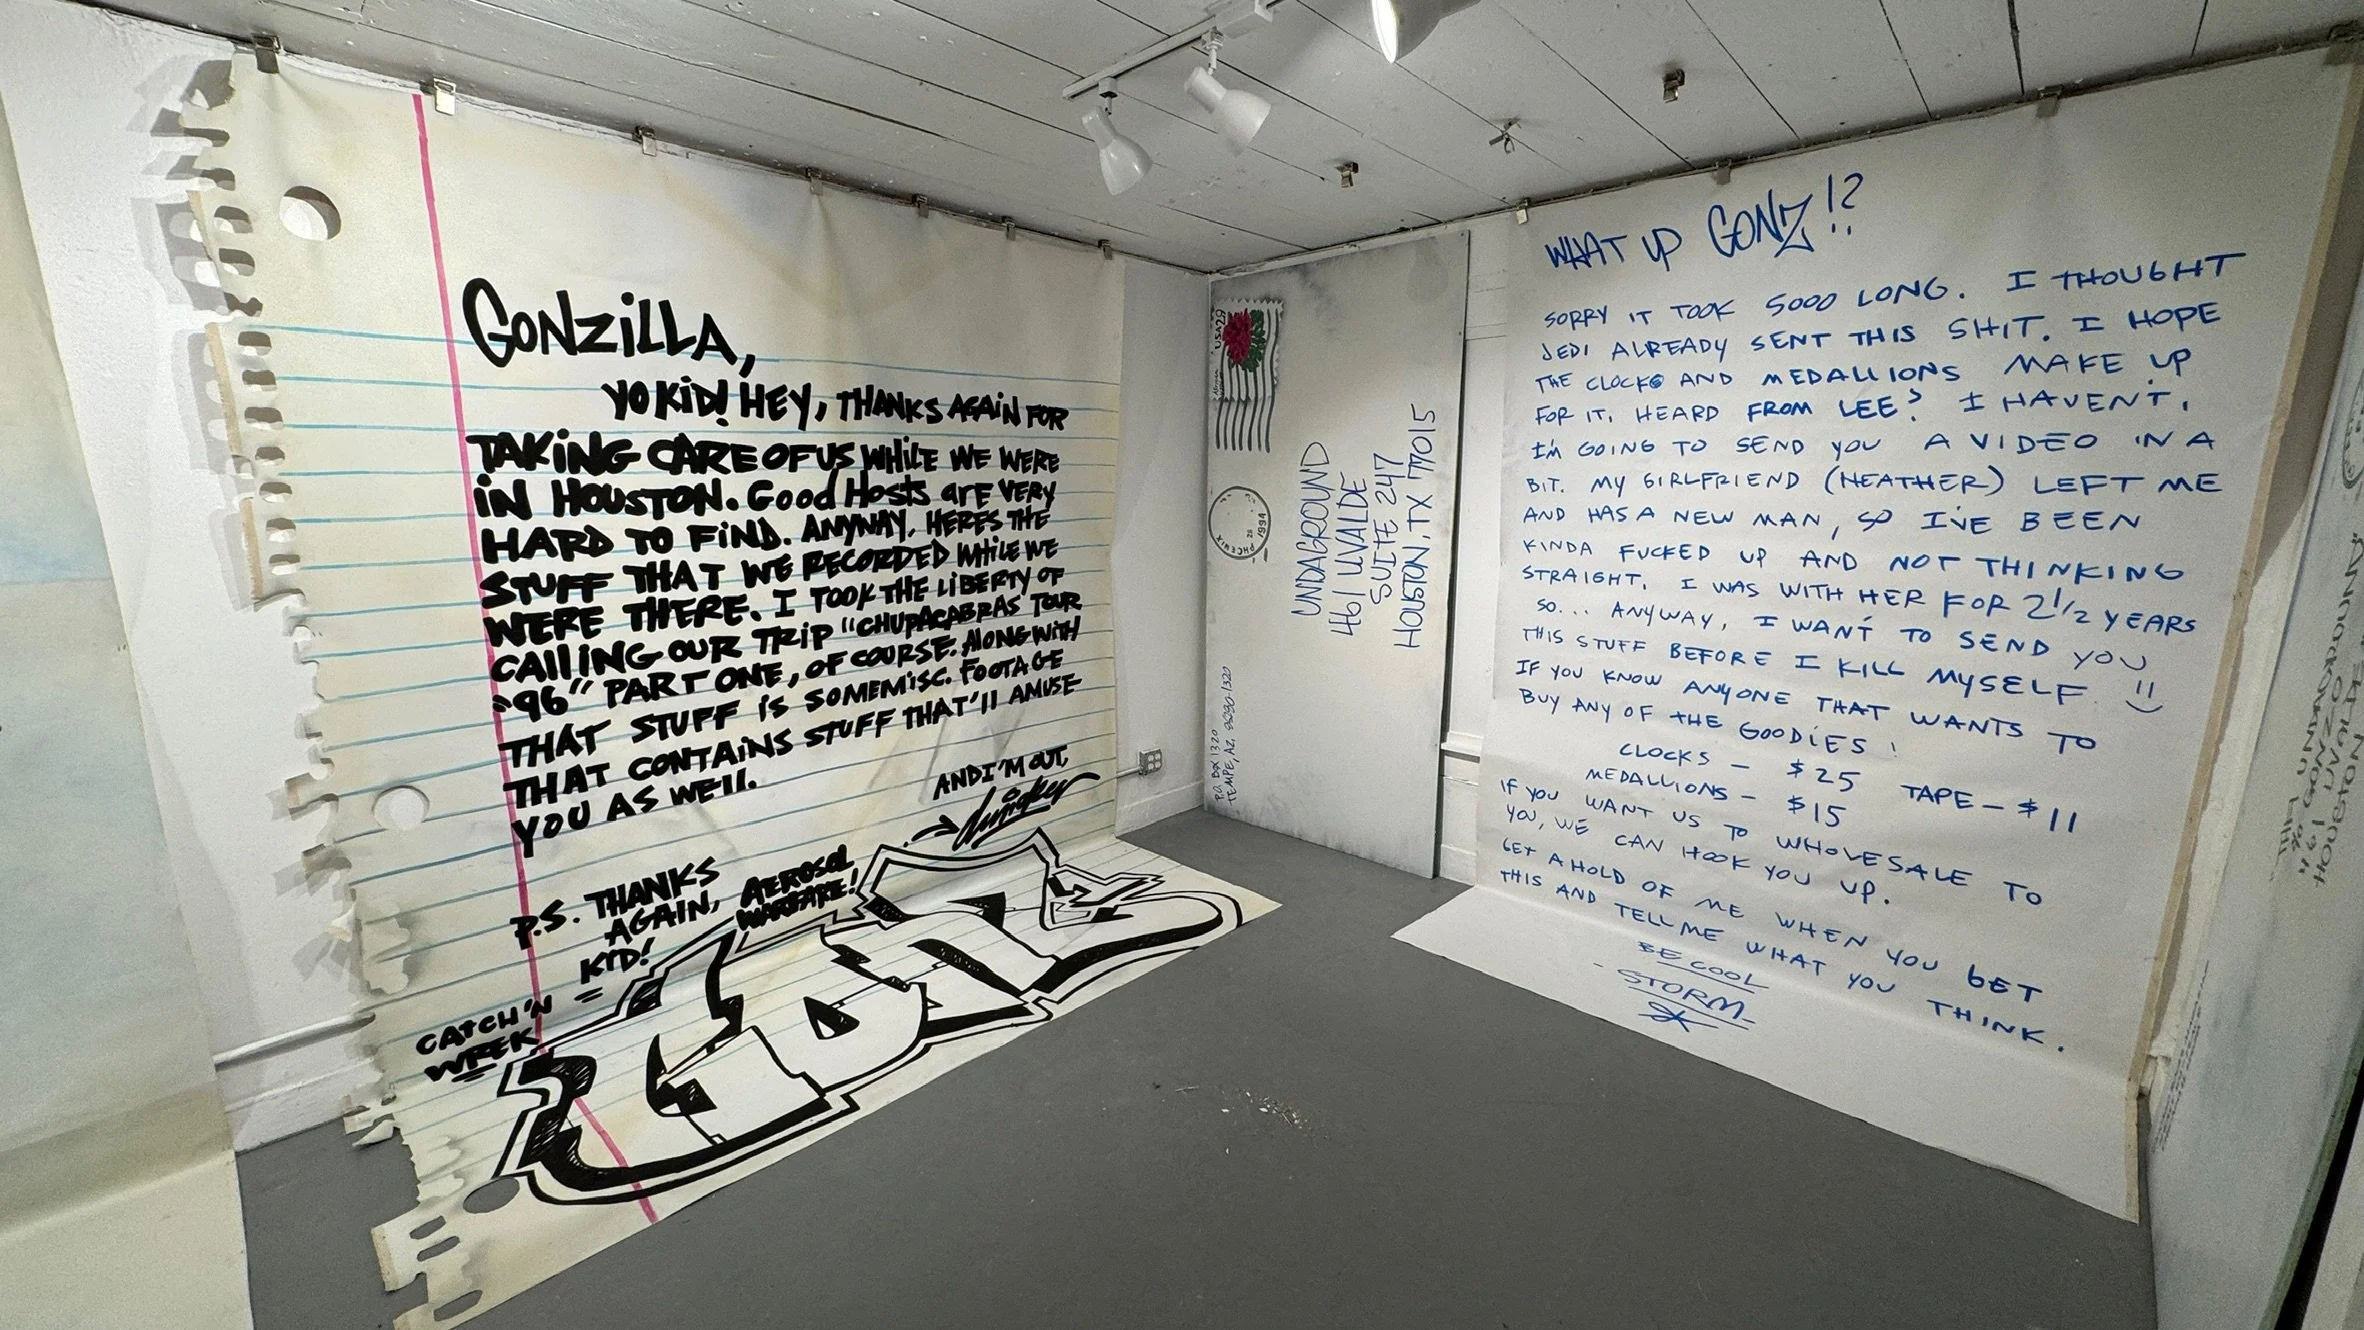 GONZiLLA,
YO KiD! HEY, THANKS AGAiN FOR
TAKiNG CARE OF US WHiLE WE WERE
iN HOUSTON. Good Hosts arE VERY
HARD TO FiND. ANYWAY, HERES THE
STUFF THAT WE RECORDED WHiLE WE
WERE THERE. I TOOK THE LiBERTY OF
CAllING OUR TRiP "CHUPACABRAS TOUR
"96" PART ONE, OF COURSE. ALONG WiTH
THAT STUFF iS SOME MiSC. FOOTAGE
THAT CONTAiNS STUFF THAT'll AMUSE
YOU AS WEll.
AND I'M OUT,
P.S. THANKS
AGAiN, AEROSOL
KiD! WARFARE!
CATCH'N
WREK
GONZ
USA 29
PHOENIX
1994
UNDAGROUND
461 UVALDE
SUITE 247
HOUSTON, TX 77015
P.O. BOX 1320
TEMPE, AZ.
WHAT UP GONZ!?
SORRY IT TOOK SOOO LONG. I THOUGHT
JEDI ALREADY SENT THIS SHIT. I HOPE
THE CLOCKS AND MEDALLIONS MAKE UP
FOR IT. HEARD FROM LEE? I HAVENT.
I'M GOING TO SEND YOU A VIDEO IN A
BIT. MY GIRLFRIEND (HEATHER) LEFT ME
AND HAS A NEW MAN, SO I'VE BEEN
KINDA FUCKED UP AND NOT THINKING
STRAIGHT. I WAS WITH HER FOR 2 1/2 YEARS
SO... ANYWAY, I WANT TO SEND YOU
THIS STUFF BEFORE I KILL MYSELF
IF YOU KNOW ANYONE THAT WANTS TO
BUY ANY OF THE GOODIES!
CLOCKS - $25 TAPE - $11
MEDALLIONS - $15
IF YOU WANT US TO WHOLESALE TO
YOU, WE CAN HOOK YOU UP.
GET A HOLD OF ME WHEN YOU GET
THIS AND TELL ME WHAT YOU THINK.
BE COOL
- STORM -